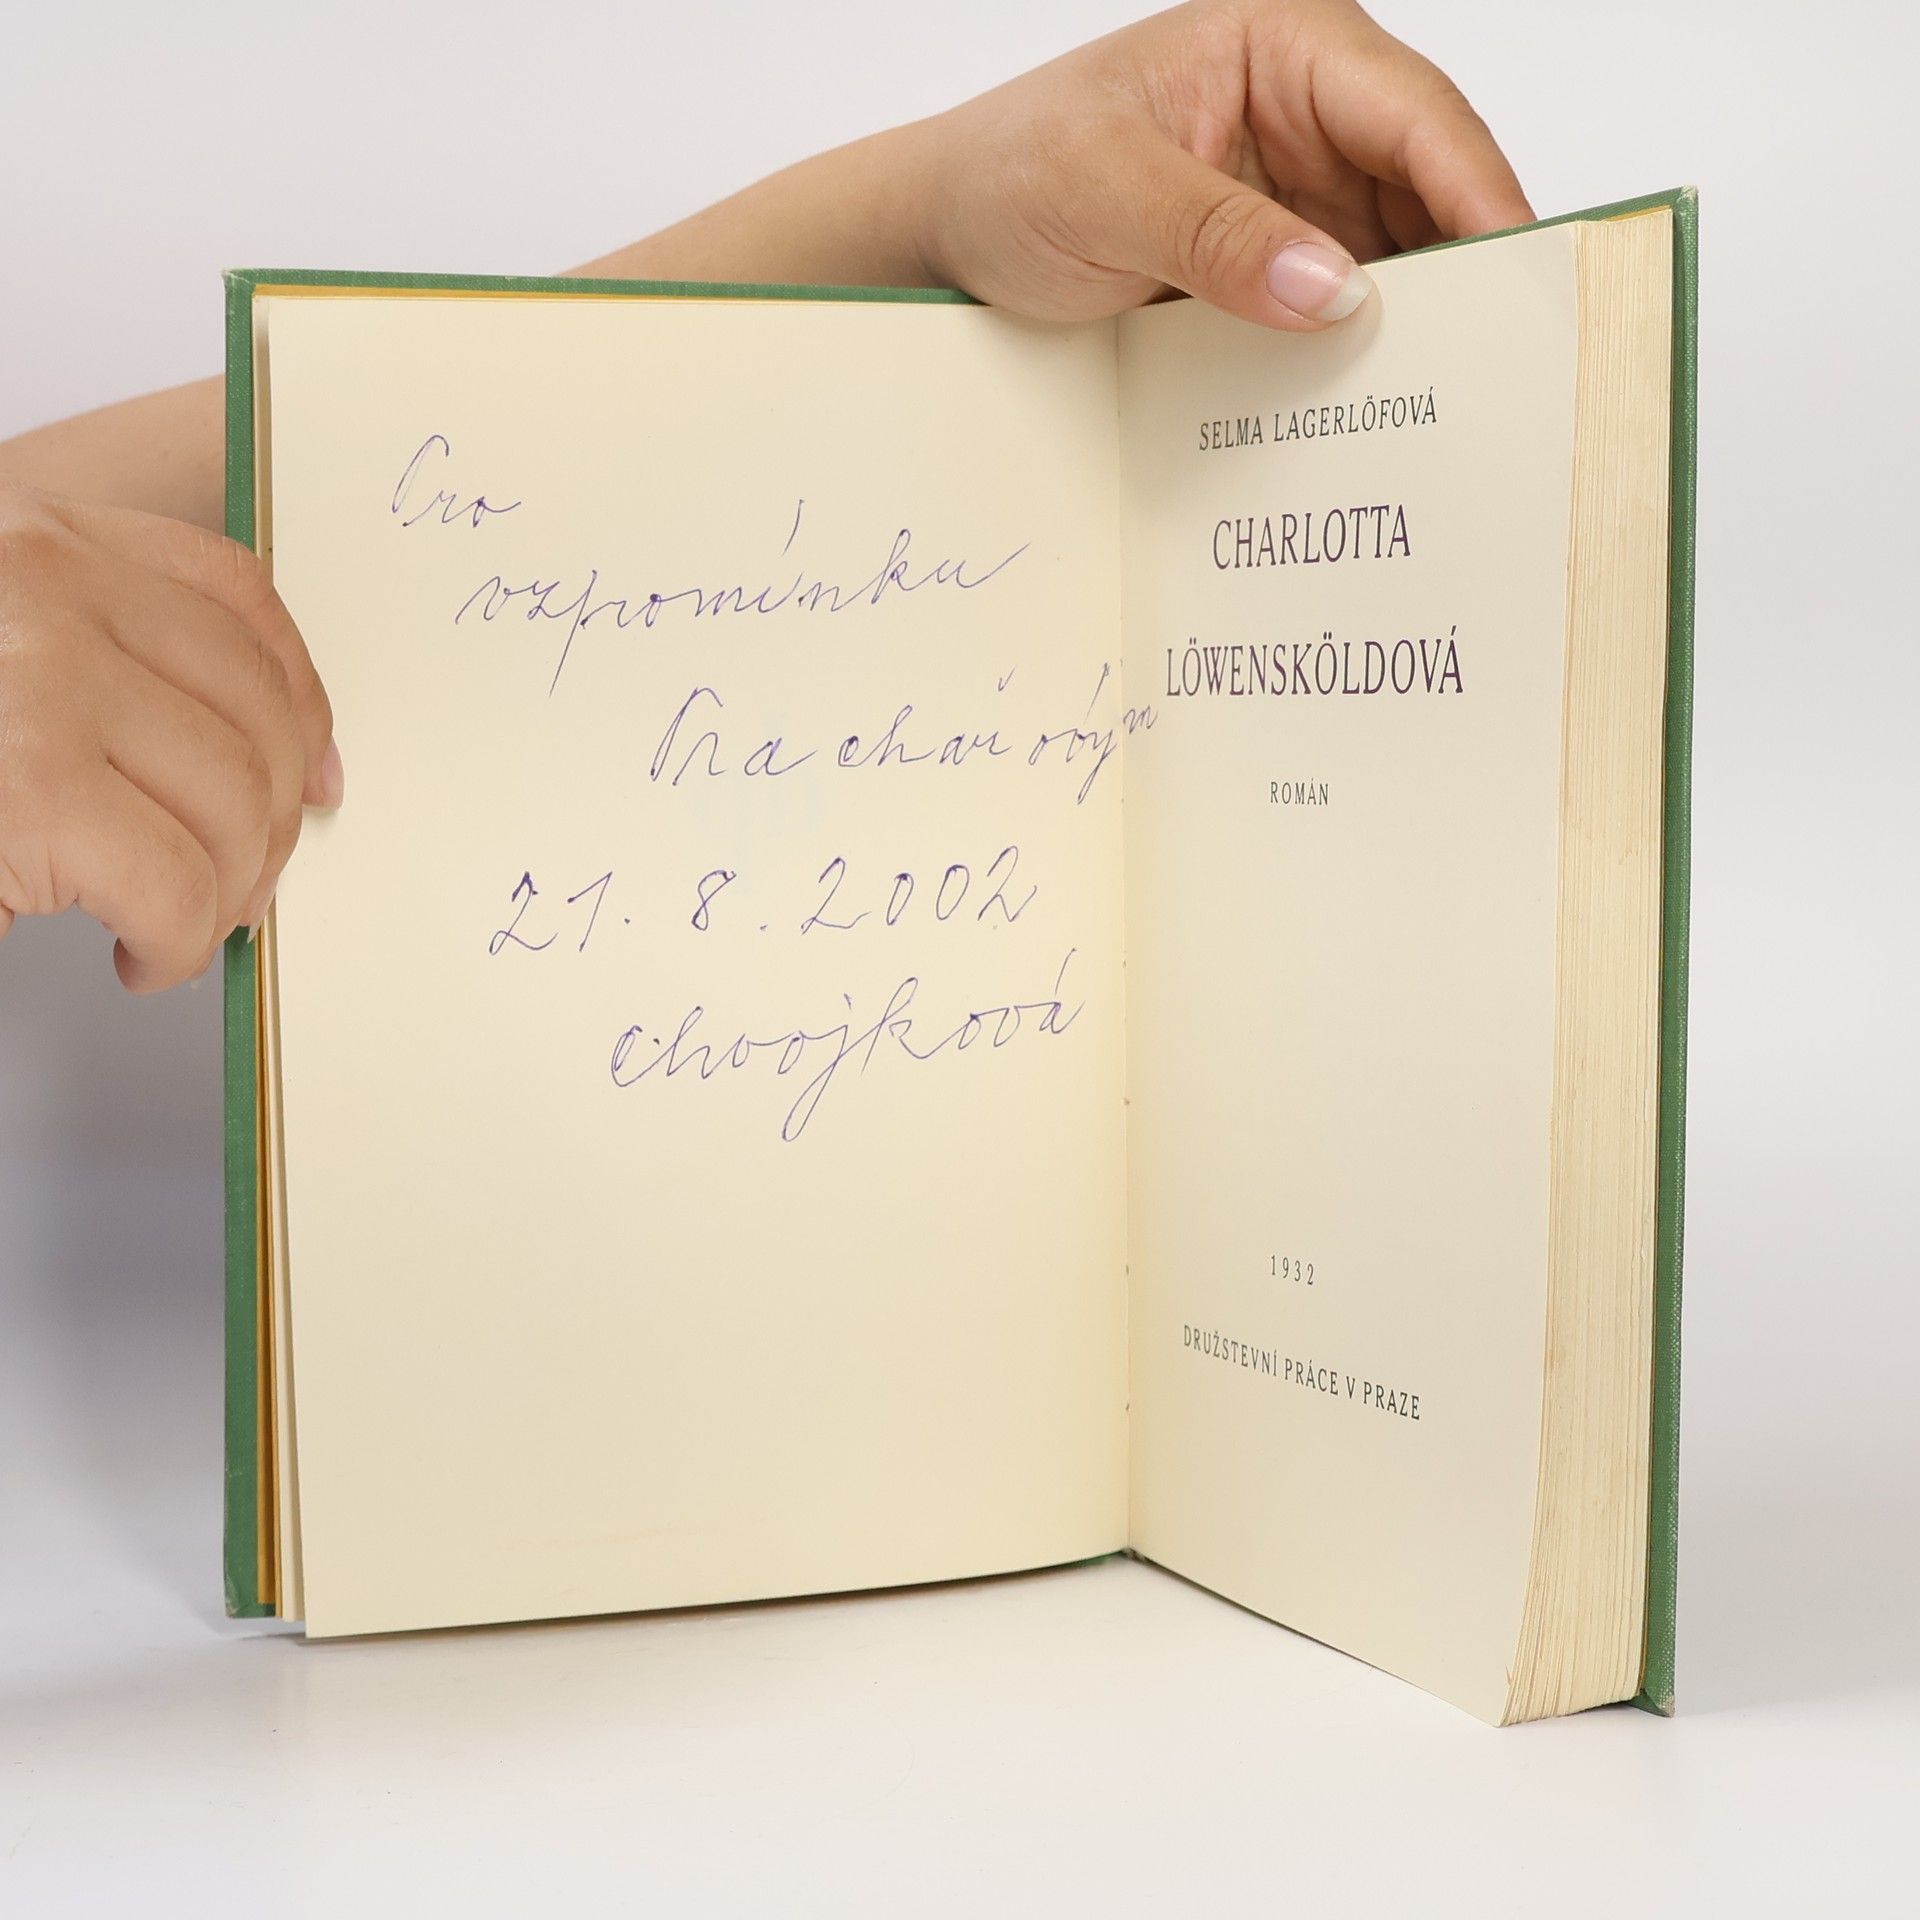 Pro
vzpomínku
Prachařovým
21. 8. 2002
Chvojková
SELMA LAGERLÖFOVÁ
CHARLOTTA
LÖWENSKÖLDOVÁ
ROMÁN
1932
DRUŽSTEVNÍ PRÁCE V PRAZE